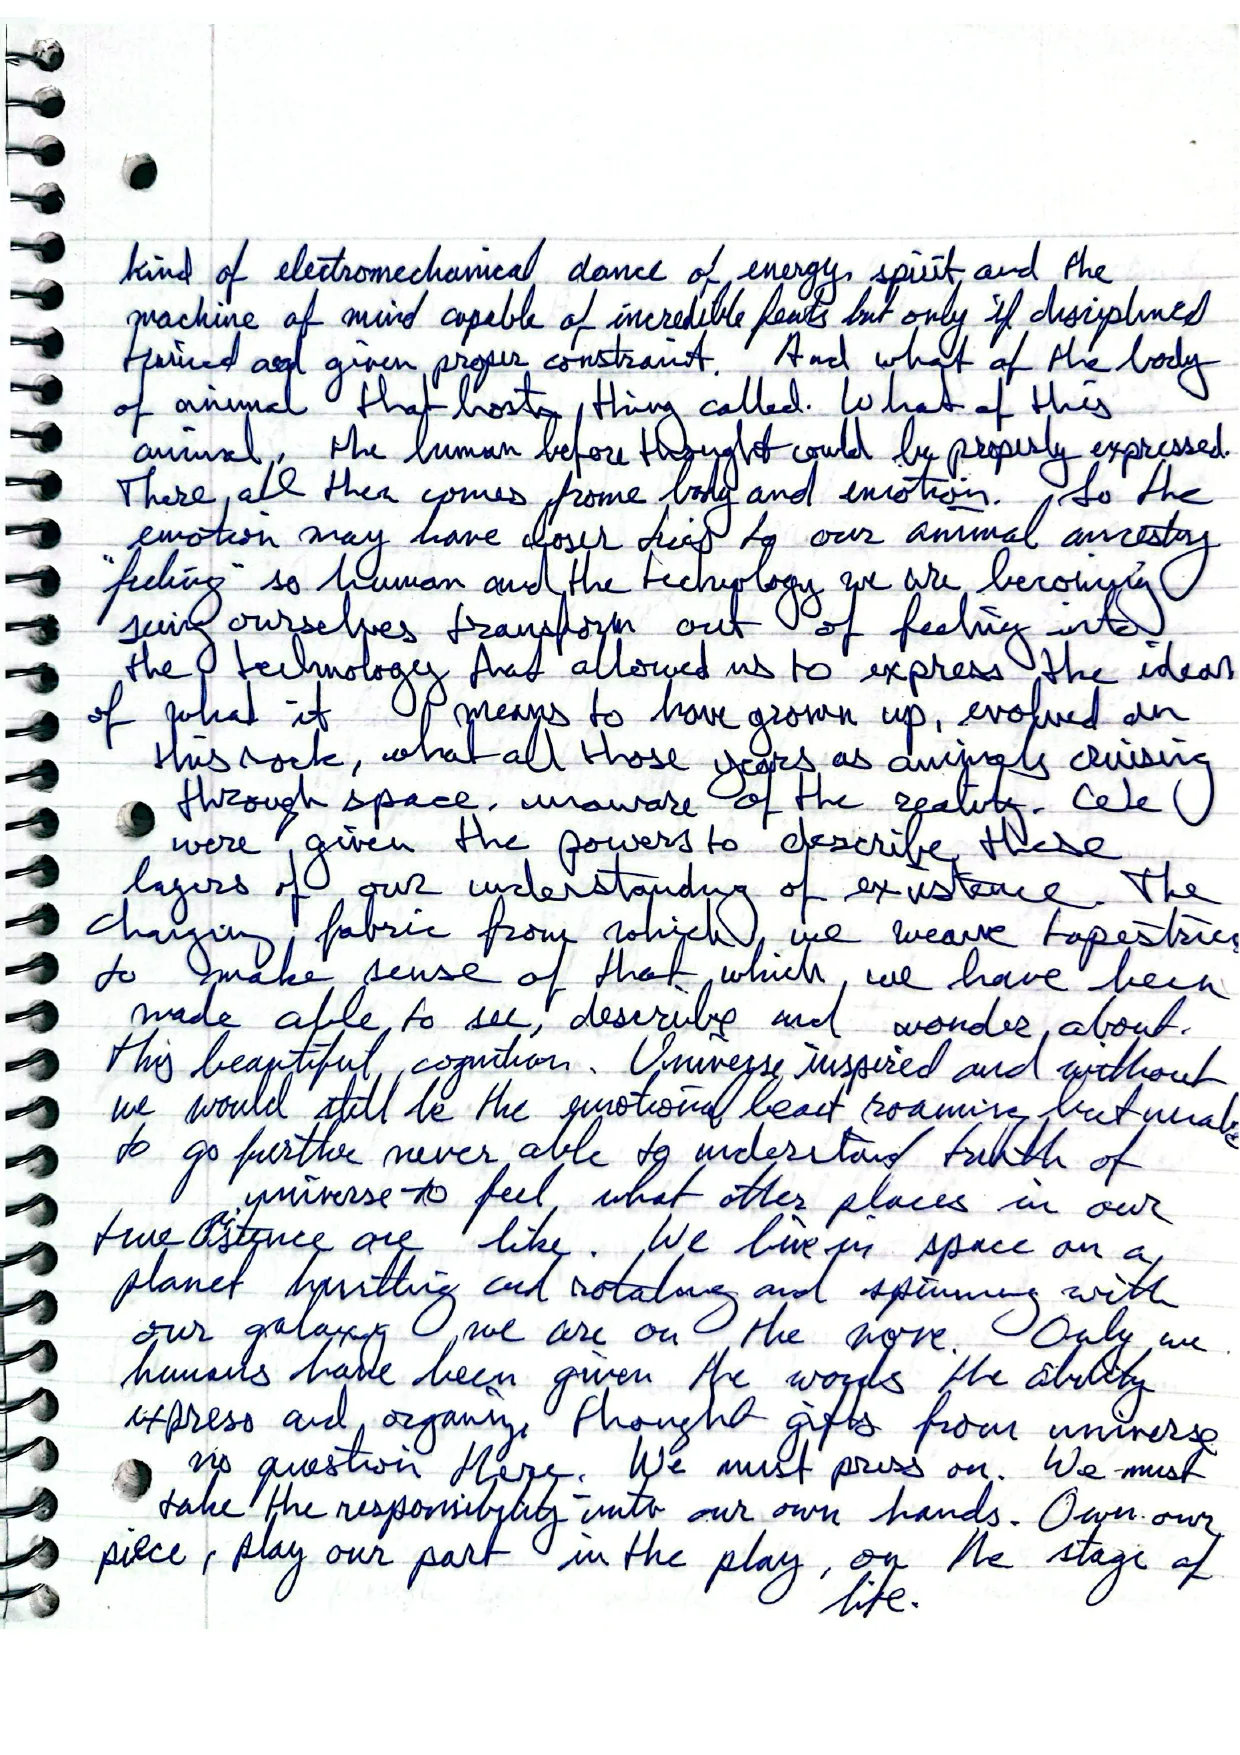 kind of electromechanical dance of energy, spirit and the
machine of mind capable of incredible feats but only if disciplined
and given proper constraint. And what of the body
of animal that hosts thing called. What of this
animal, the human before thought could be properly expressed.
There, all then comes frome body and emotion. So the
emotion may have closer ties to our animal ancestry
"feeling" so human and the technology we are becoming
seeing ourselves transform out of feeling into
the technology that allowed us to express the ideas
of what it means to have grown up, evolved on
this rock, what all those years as animals cruising
through space, unaware of the reality. We
were given the powers to describe these
layers of our understanding of existence. The
changing fabric from which we weave tapestries
to make sense of that which we have been
made able to see, describe and wonder about.
This beautiful cognition. Universe inspired and without
we would still be the emotional beast roaming but unable
to go further never able to understand truth of
universe to feel what other places in our
true are like. We live in space on a
planet hurtling and rotating and spinning with
our galaxy we are on the move. Only we
humans have been given the words the ability
express and organize thought gifts from universe
no question there. We must press on. We must
take the responsibility into our own hands. Own our
piece, play our part in the play, on the stage of
life.